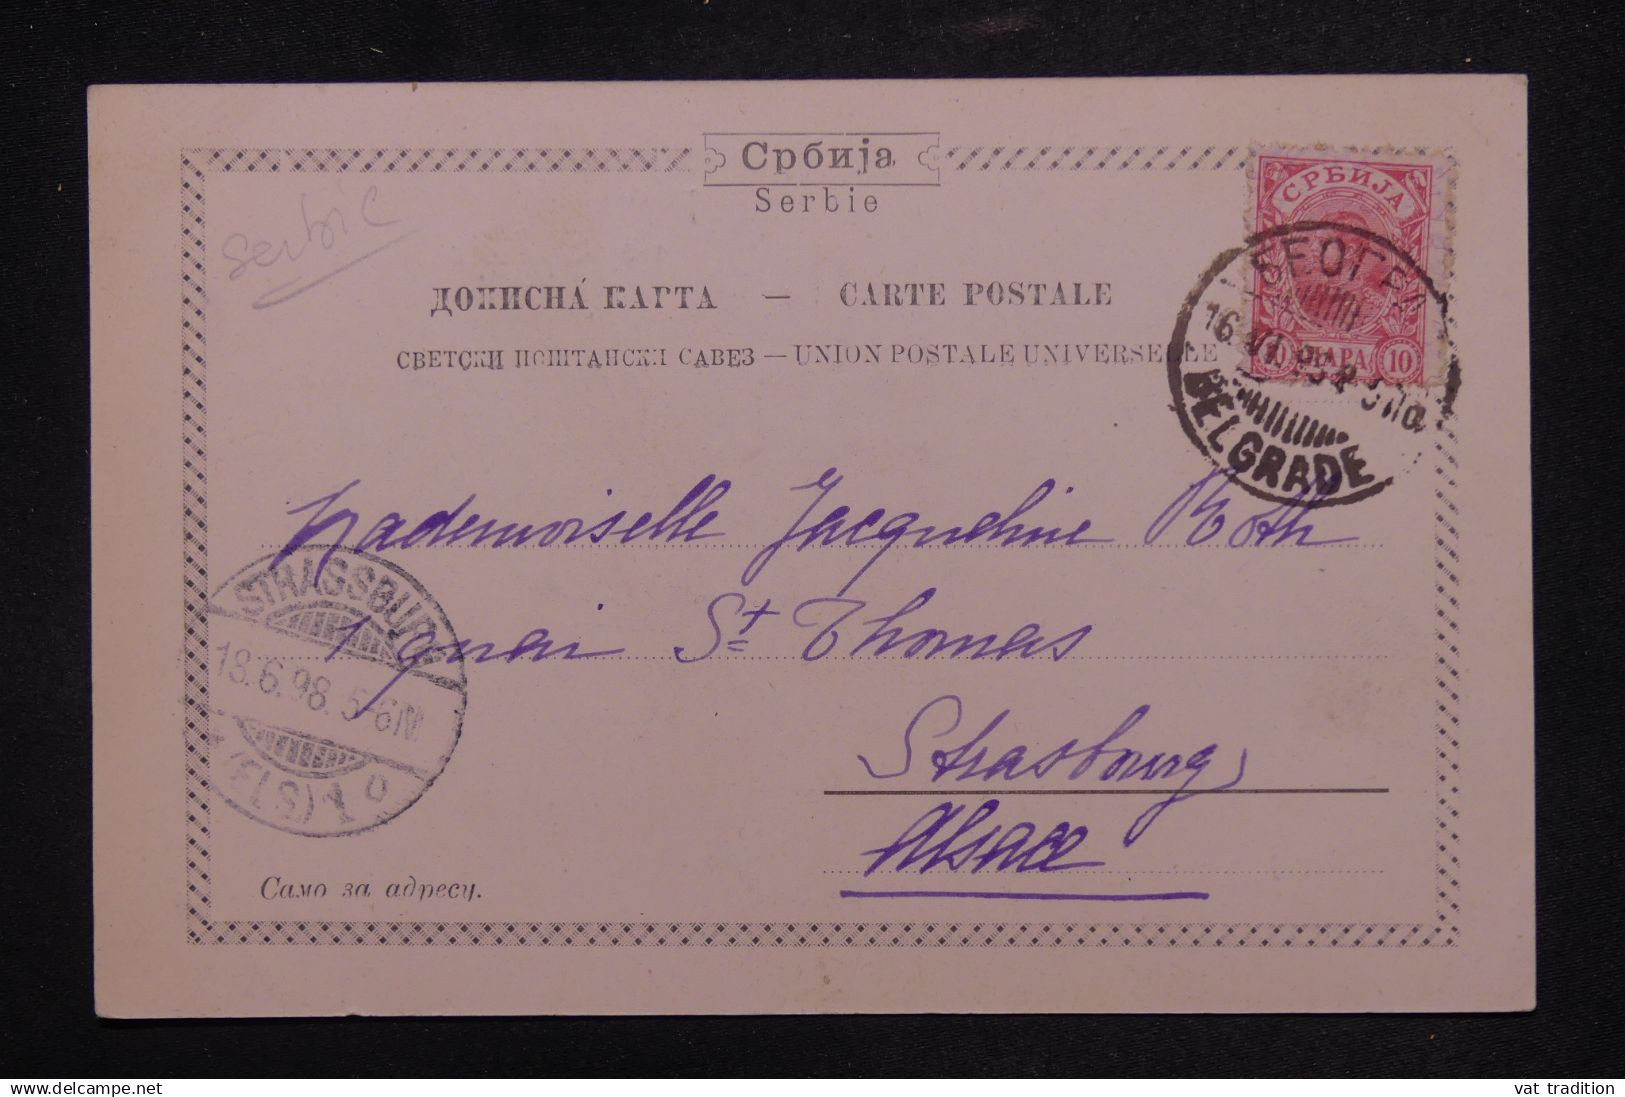 Србија
Serbie
Serbie
СРБИЈА
ПАРА 10
БЕОГРАД
BELGRADE
ДОПИСНА КАРТА — CARTE POSTALE
СВЕТСКИ ПОШТАНСКИ САВЕЗ — UNION POSTALE UNIVERSELLE
Mademoiselle Jacqueline Roth
1 quai St Thomas
Strasbourg,
Alsace
STRASSBURG
18.6.98. 5-6N.
(ELS) 1
Само за адресу.
www.delcampe.net
vat tradition